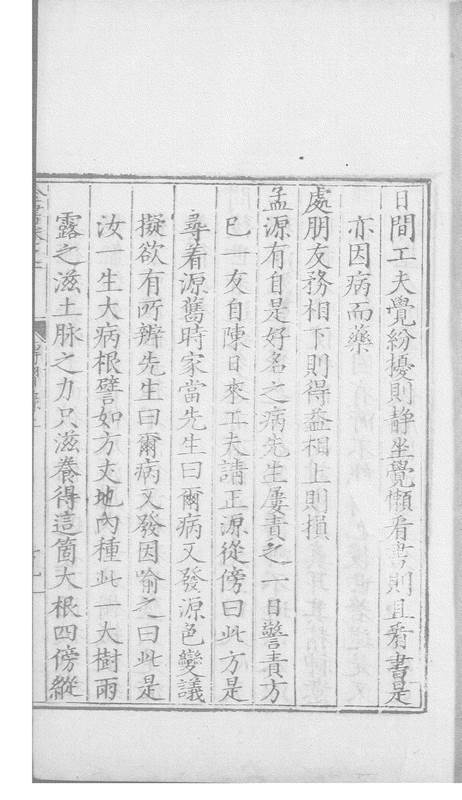 日間工夫覺紛擾則靜坐覺懶看書則且看書是
亦因病而藥
處朋友務相下則得益相上則損
孟源有自是好名之病先生屢責之一日警責方
已一友自陳日來工夫請正源從傍曰此方是
尋着源舊時家當先生曰爾病又發源色變議
擬欲有所辨先生曰爾病又發因喻之曰此是
汝一生大病根譬如方丈地內種此一大樹雨
露之滋土脉之力只滋養得這箇大根四傍縱